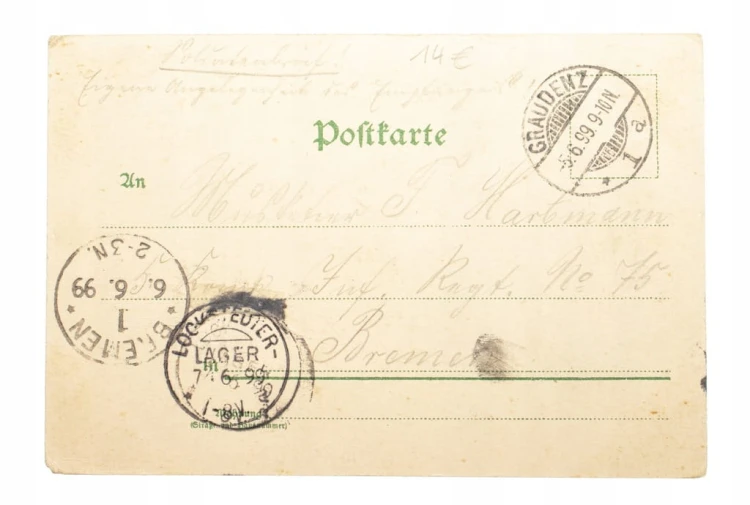 Soldatenbrief!
14 €
Eigene Angelegenheit des Empfängers!
GRAUDENZ
5.6.99.9-10N.
* 1 a
Postkarte
An
Musketier F. Hartmann
5. Komp. Inf. Regt. No 75.
Bremen
in
BREMEN
1
6. 6. 99
2-3N.
LOCKSTEDTER-
LAGER
7. 6. 99
7-8V.
Wohnung
(Straße und Hausnummer)